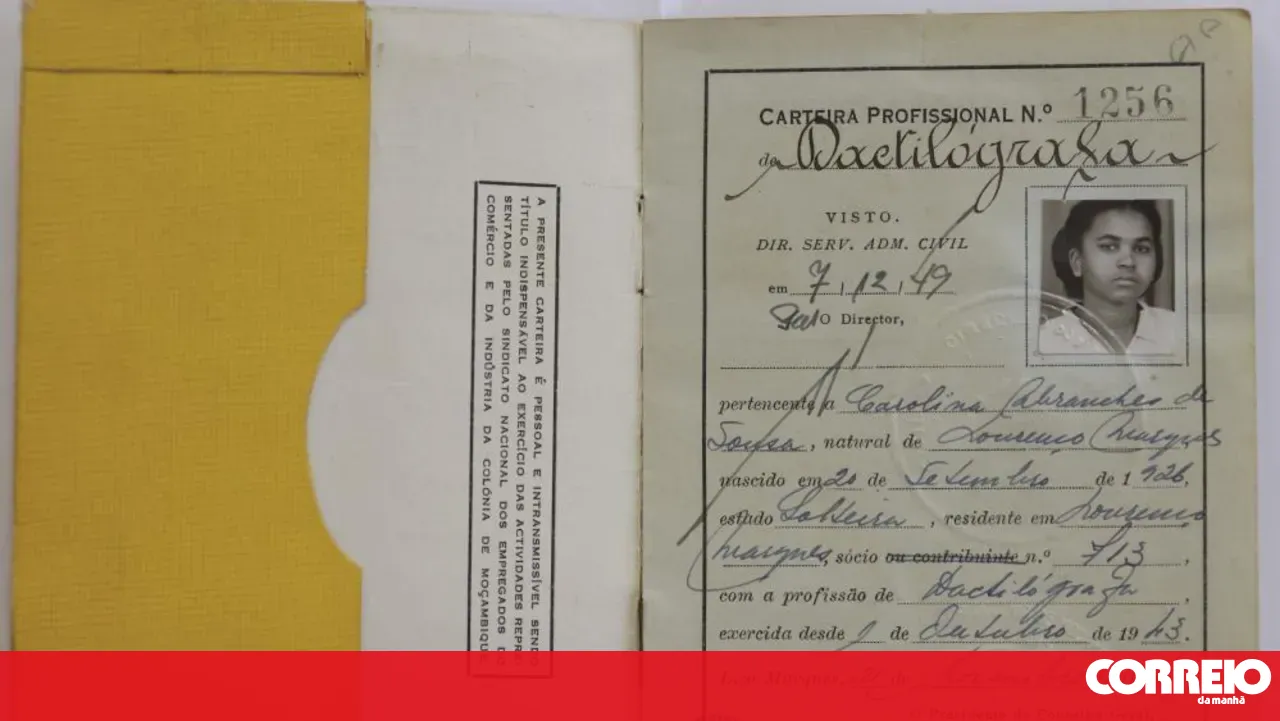 A PRESENTE CARTEIRA É PESSOAL E INTRANSMISSÍVEL SENDO
TÍTULO INDISPENSÁVEL AO EXERCÍCIO DAS ACTIVIDADES REPRE
SENTADAS PELO SINDICATO NACIONAL DOS EMPREGADOS DO
COMÉRCIO E DA INDÚSTRIA DA COLÓNIA DE MOÇAMBIQUE
CARTEIRA PROFISSIONAL N.º 1256
de Dactilógrafa
VISTO.
DIR. SERV. ADM. CIVIL
em 7, 12, 49
O Director,
pertencente a Carolina Abranches de
Sousa, natural de Lourenço Marques
nascido em 20 de Setembro de 1926,
estado Solteira, residente em Lourenço
Marques, sócio ou contribuinte n.º 713,
com a profissão de Dactilógrafa,
exercida desde 1 de Outubro de 1943.
CORREIO
da manhã